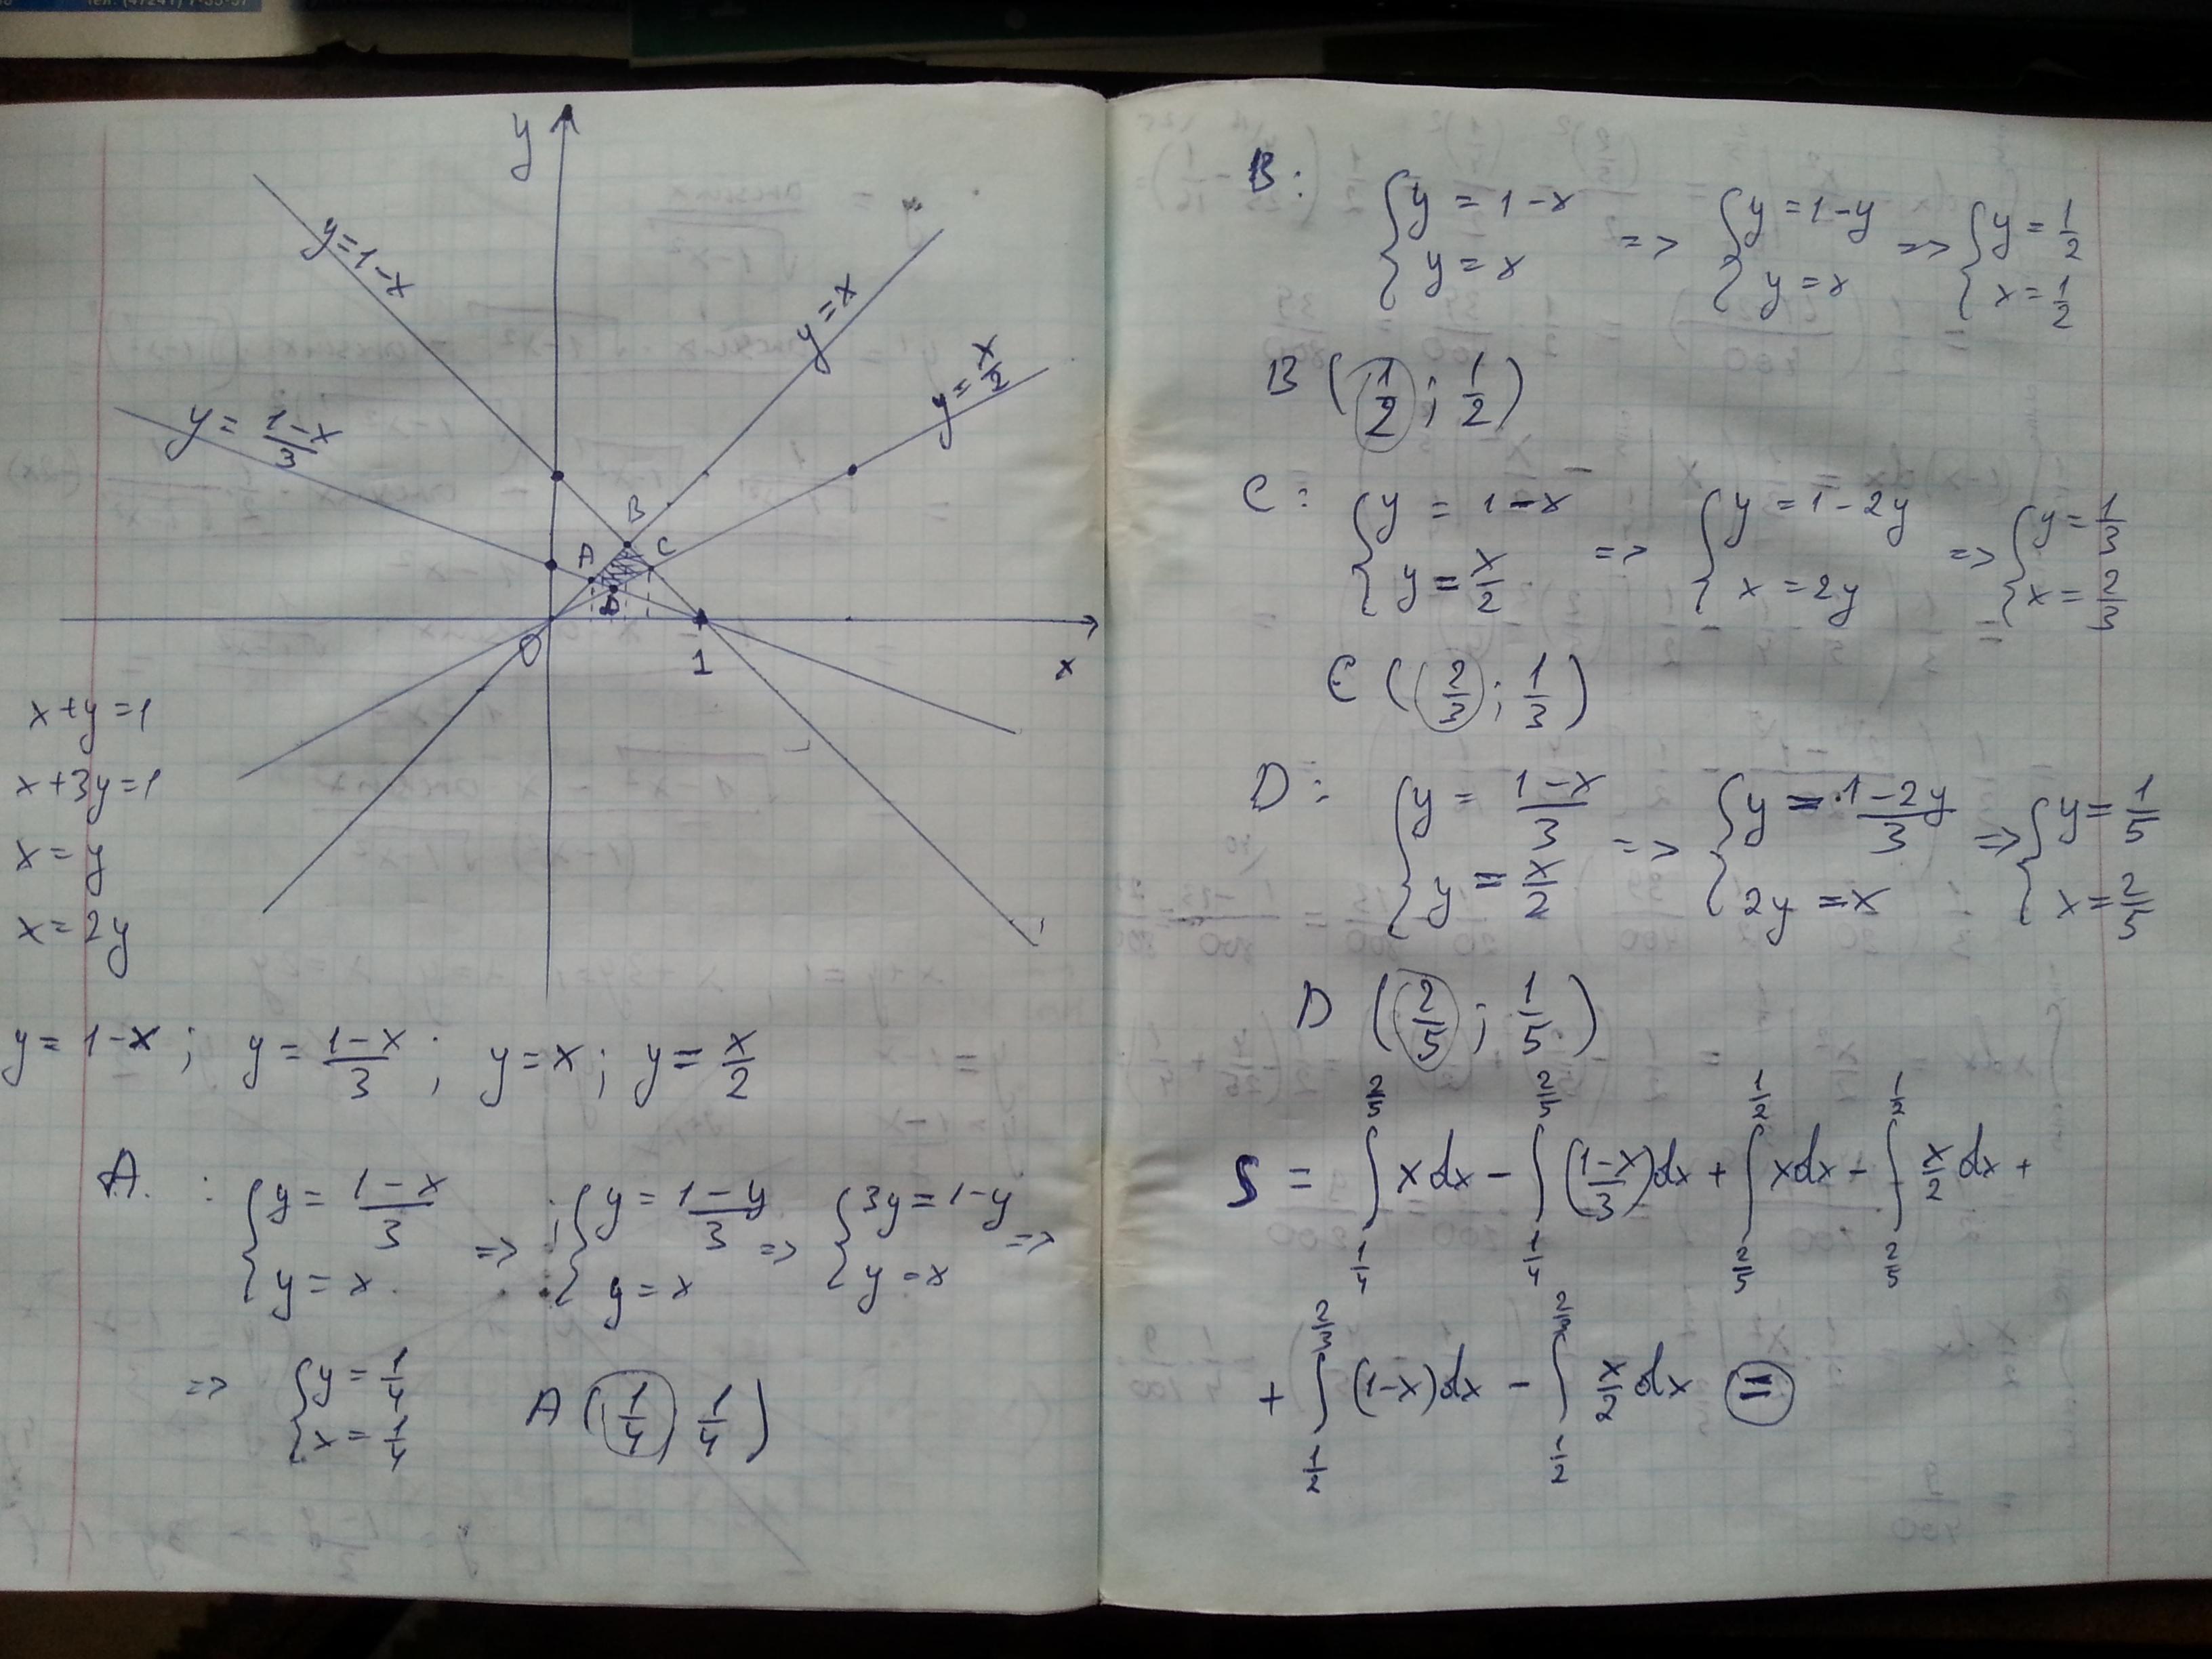 Тел. (47241) 7-55-57
y
y=1-x
y=x
y=x/2
y = (1-x)/3
B
A
C
D
O
1
x
x+y=1
x+3y=1
x=y
x=2y
y = 1-x ; y = (1-x)/3 ; y = x ; y = x/2
A. : { y = (1-x)/3 ; y = x . => { y = (1-y)/3 ; y = x => { 3y = 1-y ; y = x =>
=> { y = 1/4 ; x = 1/4 A (1/4 ; 1/4)
B: { y = 1-x ; y = x => { y = 1-y ; y = x => { y = 1/2 ; x = 1/2
B (1/2 ; 1/2)
C: { y = 1-x ; y = x/2 => { y = 1-2y ; x = 2y => { y = 1/3 ; x = 2/3
C (2/3 ; 1/3)
D: { y = (1-x)/3 ; y = x/2 => { y = (1-2y)/3 ; 2y = x => { y = 1/5 ; x = 2/5
D (2/5 ; 1/5)
S = ∫_{1/4}^{2/5} x dx - ∫_{1/4}^{2/5} ((1-x)/3) dx + ∫_{2/5}^{1/2} x dx - ∫_{2/5}^{1/2} x/2 dx +
+ ∫_{1/2}^{2/3} (1-x) dx - ∫_{1/2}^{2/3} x/2 dx =